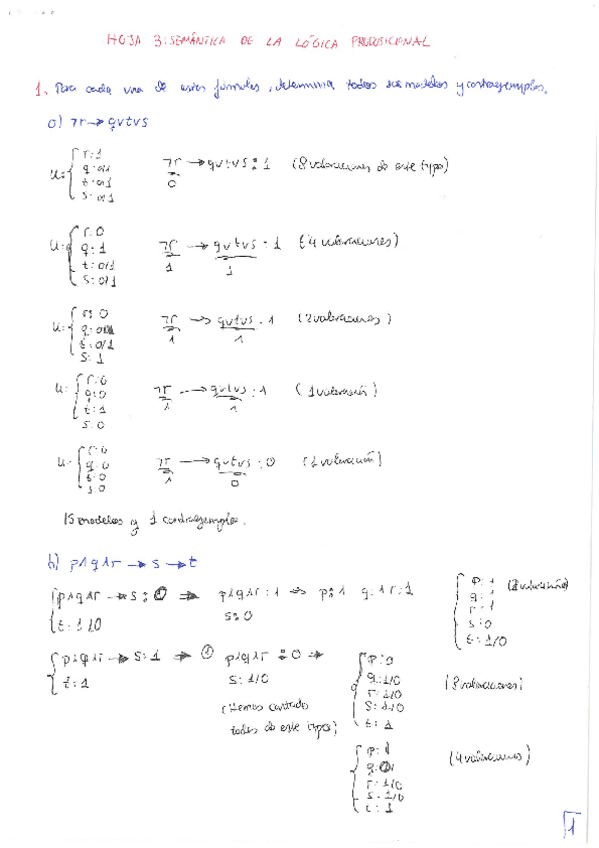 HOJA 3: SEMÁNTICA DE LA LÓGICA PROPOSICIONAL
1. Para cada una de estas fórmulas, determina todos sus modelos y contraejemplos.
a) ¬r → q∨t∨s
u: { r: 1 q: 0/1 t: 0/1 s: 0/1
¬r → q∨t∨s : 1 (8 valoraciones de este tipo)
0
u: { r: 0 q: 1 t: 0/1 s: 0/1
¬r → q∨t∨s : 1 (4 valoraciones)
1 1
u: { r: 0 q: t: 0/1 s: 1
¬r → q∨t∨s : 1 (2 valoraciones)
1 1
u: { r: 0 q: 0 t: 1 s: 0
¬r → q∨t∨s : 1 (1 valoración)
1 1
u: { r: 0 q: 0 t: 0 s: 0
¬r → q∨t∨s : 0 (1 valoración)
1 0
15 modelos y 1 contraejemplo.
b) p∧q∧r → s → t
{ p∧q∧r → s : 0 ⇒ p∧q∧r : 1 ⇒ p: 1 q: 1 r: 1
t: 1/0 s: 0
{ p: 1 q: 1 r: 1 s: 0 t: 1/0
{ p∧q∧r → s : 1 ⇒ ① p∧q∧r : 0 ⇒
t: 1 s: 1/0
(Hemos contado
todas de este tipo)
{ p: 0 q: 1/0 r: 1/0 s: 1/0 t: 1 (8 valoraciones)
{ p: 1 q: 0 r: 1/0 s: 1/0 t: 1 (4 valoraciones)
1